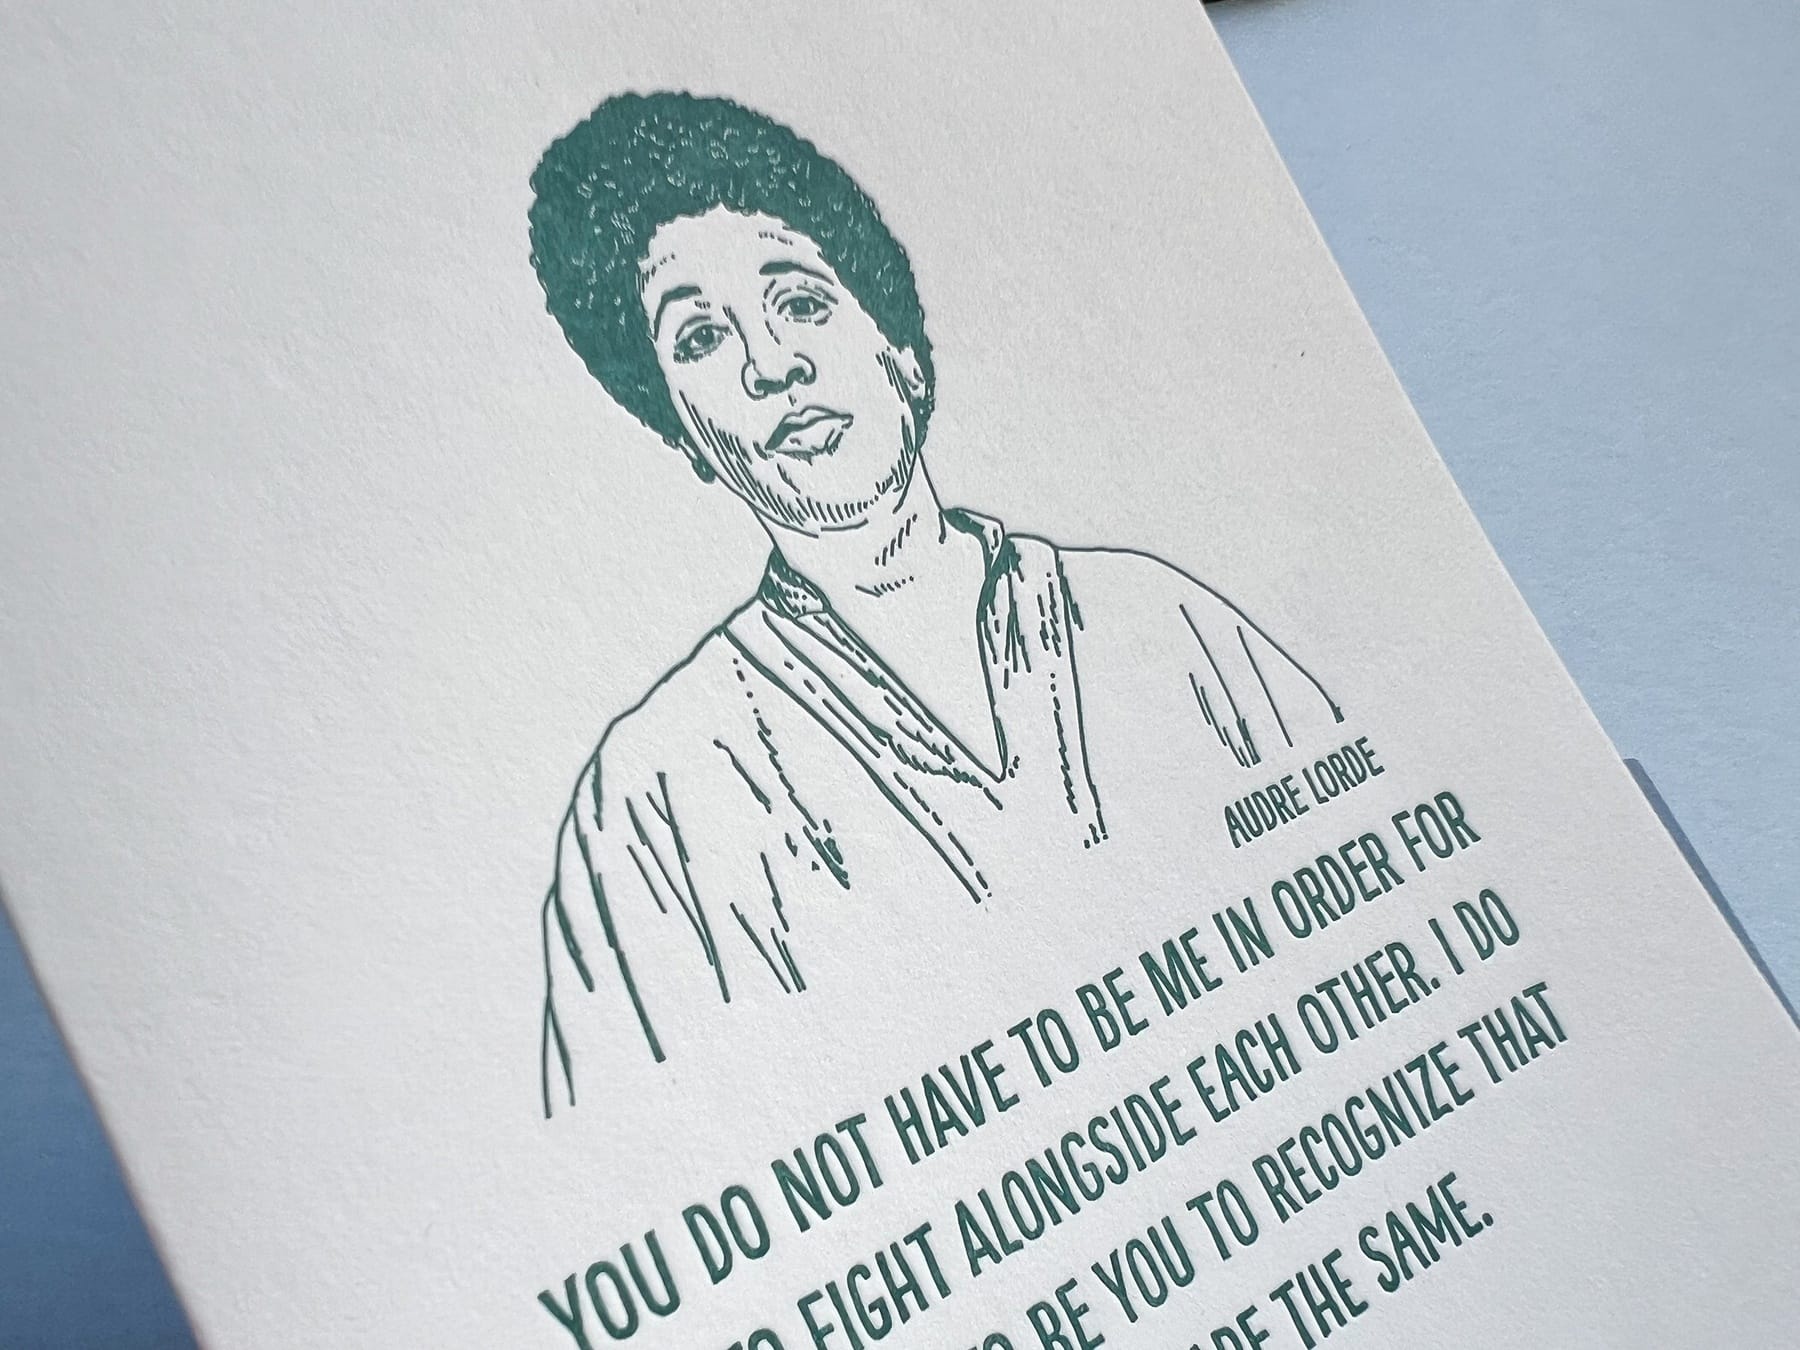 AUDRE LORDE
YOU DO NOT HAVE TO BE ME IN ORDER FOR
TO FIGHT ALONGSIDE EACH OTHER. I DO
TO BE YOU TO RECOGNIZE THAT
ARE THE SAME.